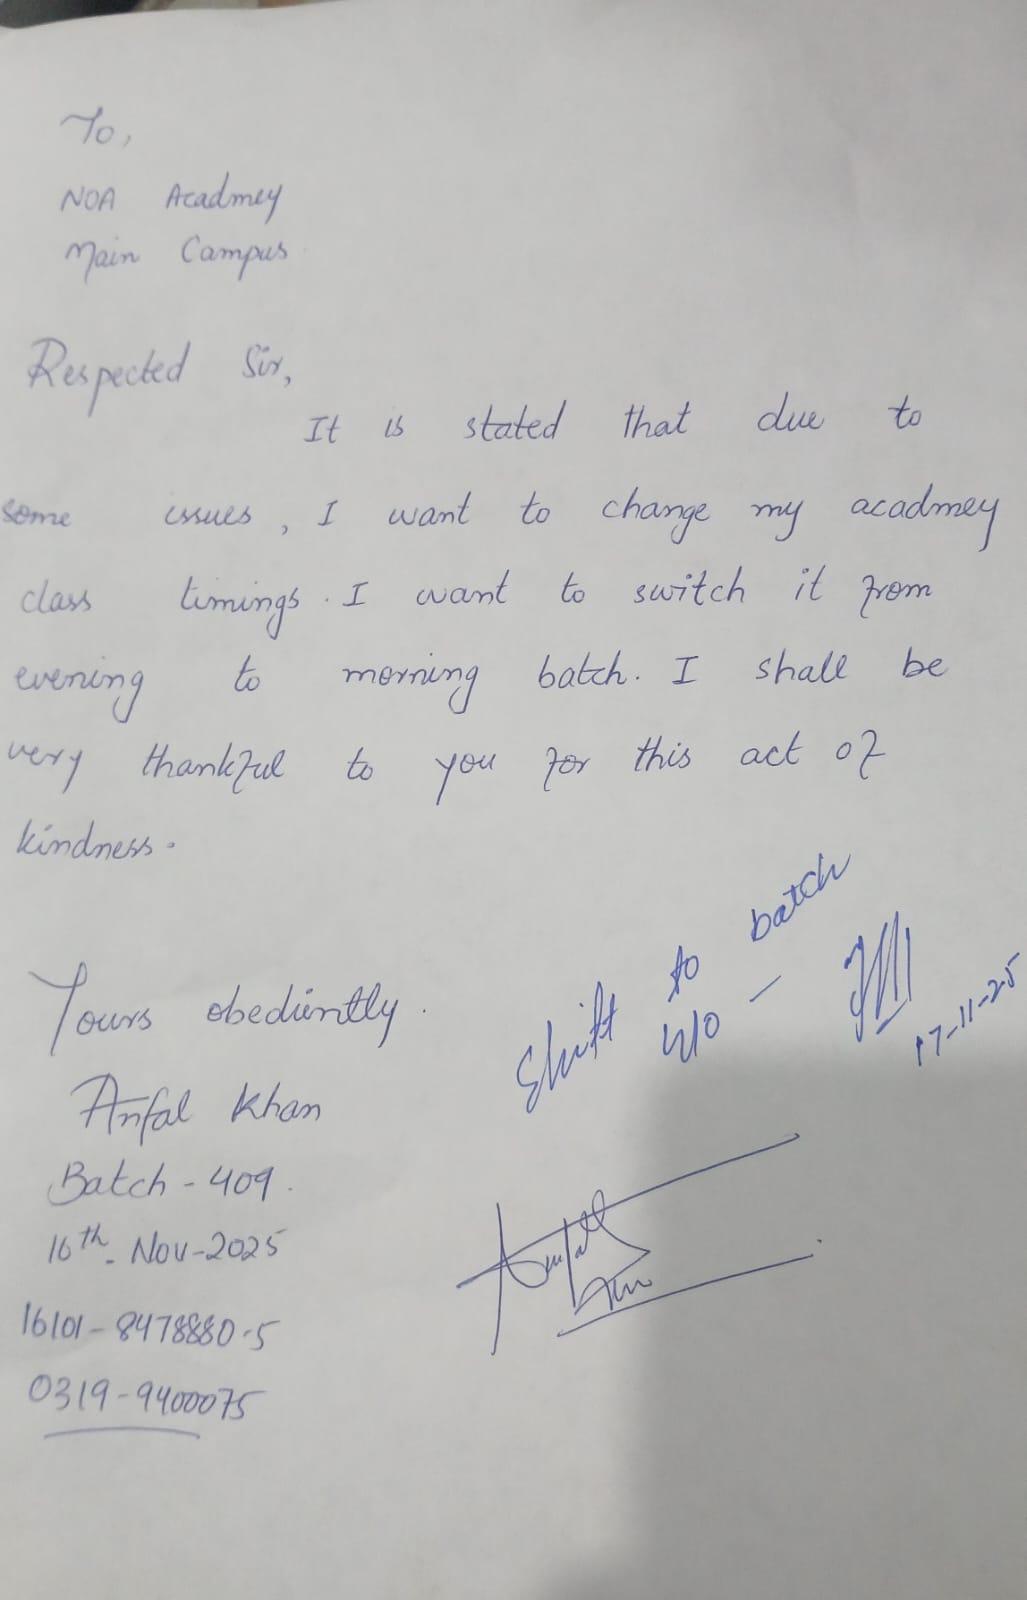 To,
NOA Acadmey
Main Campus
Respected Sir,
It is stated that due to
some issues, I want to change my acadmey
class timings. I want to switch it from
evening to morning batch. I shall be
very thankful to you for this act of
kindness.
Shift to batch
410 -
17-11-25
Yours obediently.
Anfal Khan
Batch - 409.
16th- Nov-2025
16101-8478880-5
0319-9400075